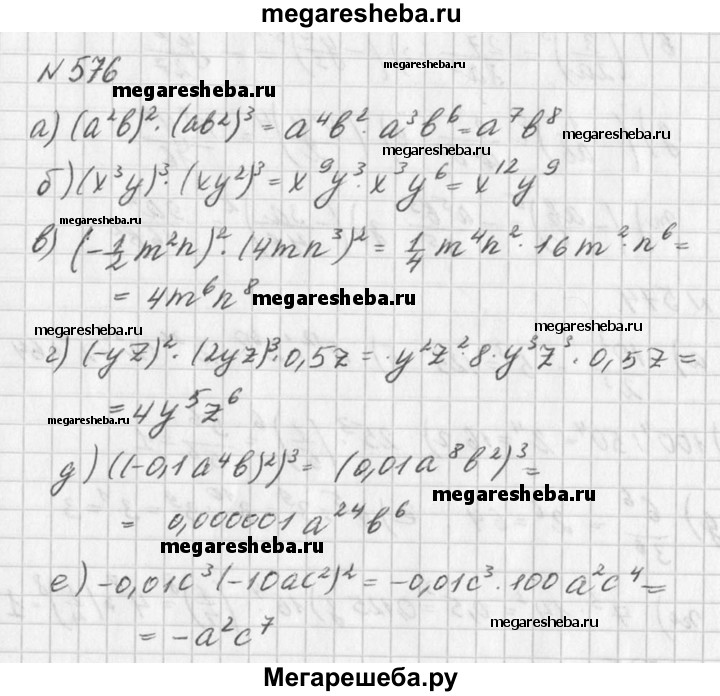 megaresheba.ru
№ 576
megaresheba.ru
а) (a²b)² · (ab2)³ = a⁴b² · a³b⁶ = a⁷b⁸
megaresheba.ru
б) (x³y)³ · (xy²)³ = x⁹y³ · x³y⁶ = x¹²y⁹
megaresheba.ru
в) (-1/2 m²n)² · (4mn³)² = 1/4 m⁴n² · 16m² · n⁶ =
= 4m⁶n⁸
megaresheba.ru
megaresheba.ru
megaresheba.ru
г) (-yz)² · (2yz)³ · 0,5z = · y²z² · 8 · y³z³ · 0,5z =
= 4y⁵z⁶
megaresheba.ru
д) ((-0,1a⁴b)²)³ = (0,01a⁸b²)³ =
megaresheba.ru
= 0,000001a²⁴b⁶
megaresheba.ru
е) -0,01c³(-10ac²)² = -0,01c³ · 100a²c⁴ =
= -a²c⁷
megaresheba.ru
Мегарешеба.ру